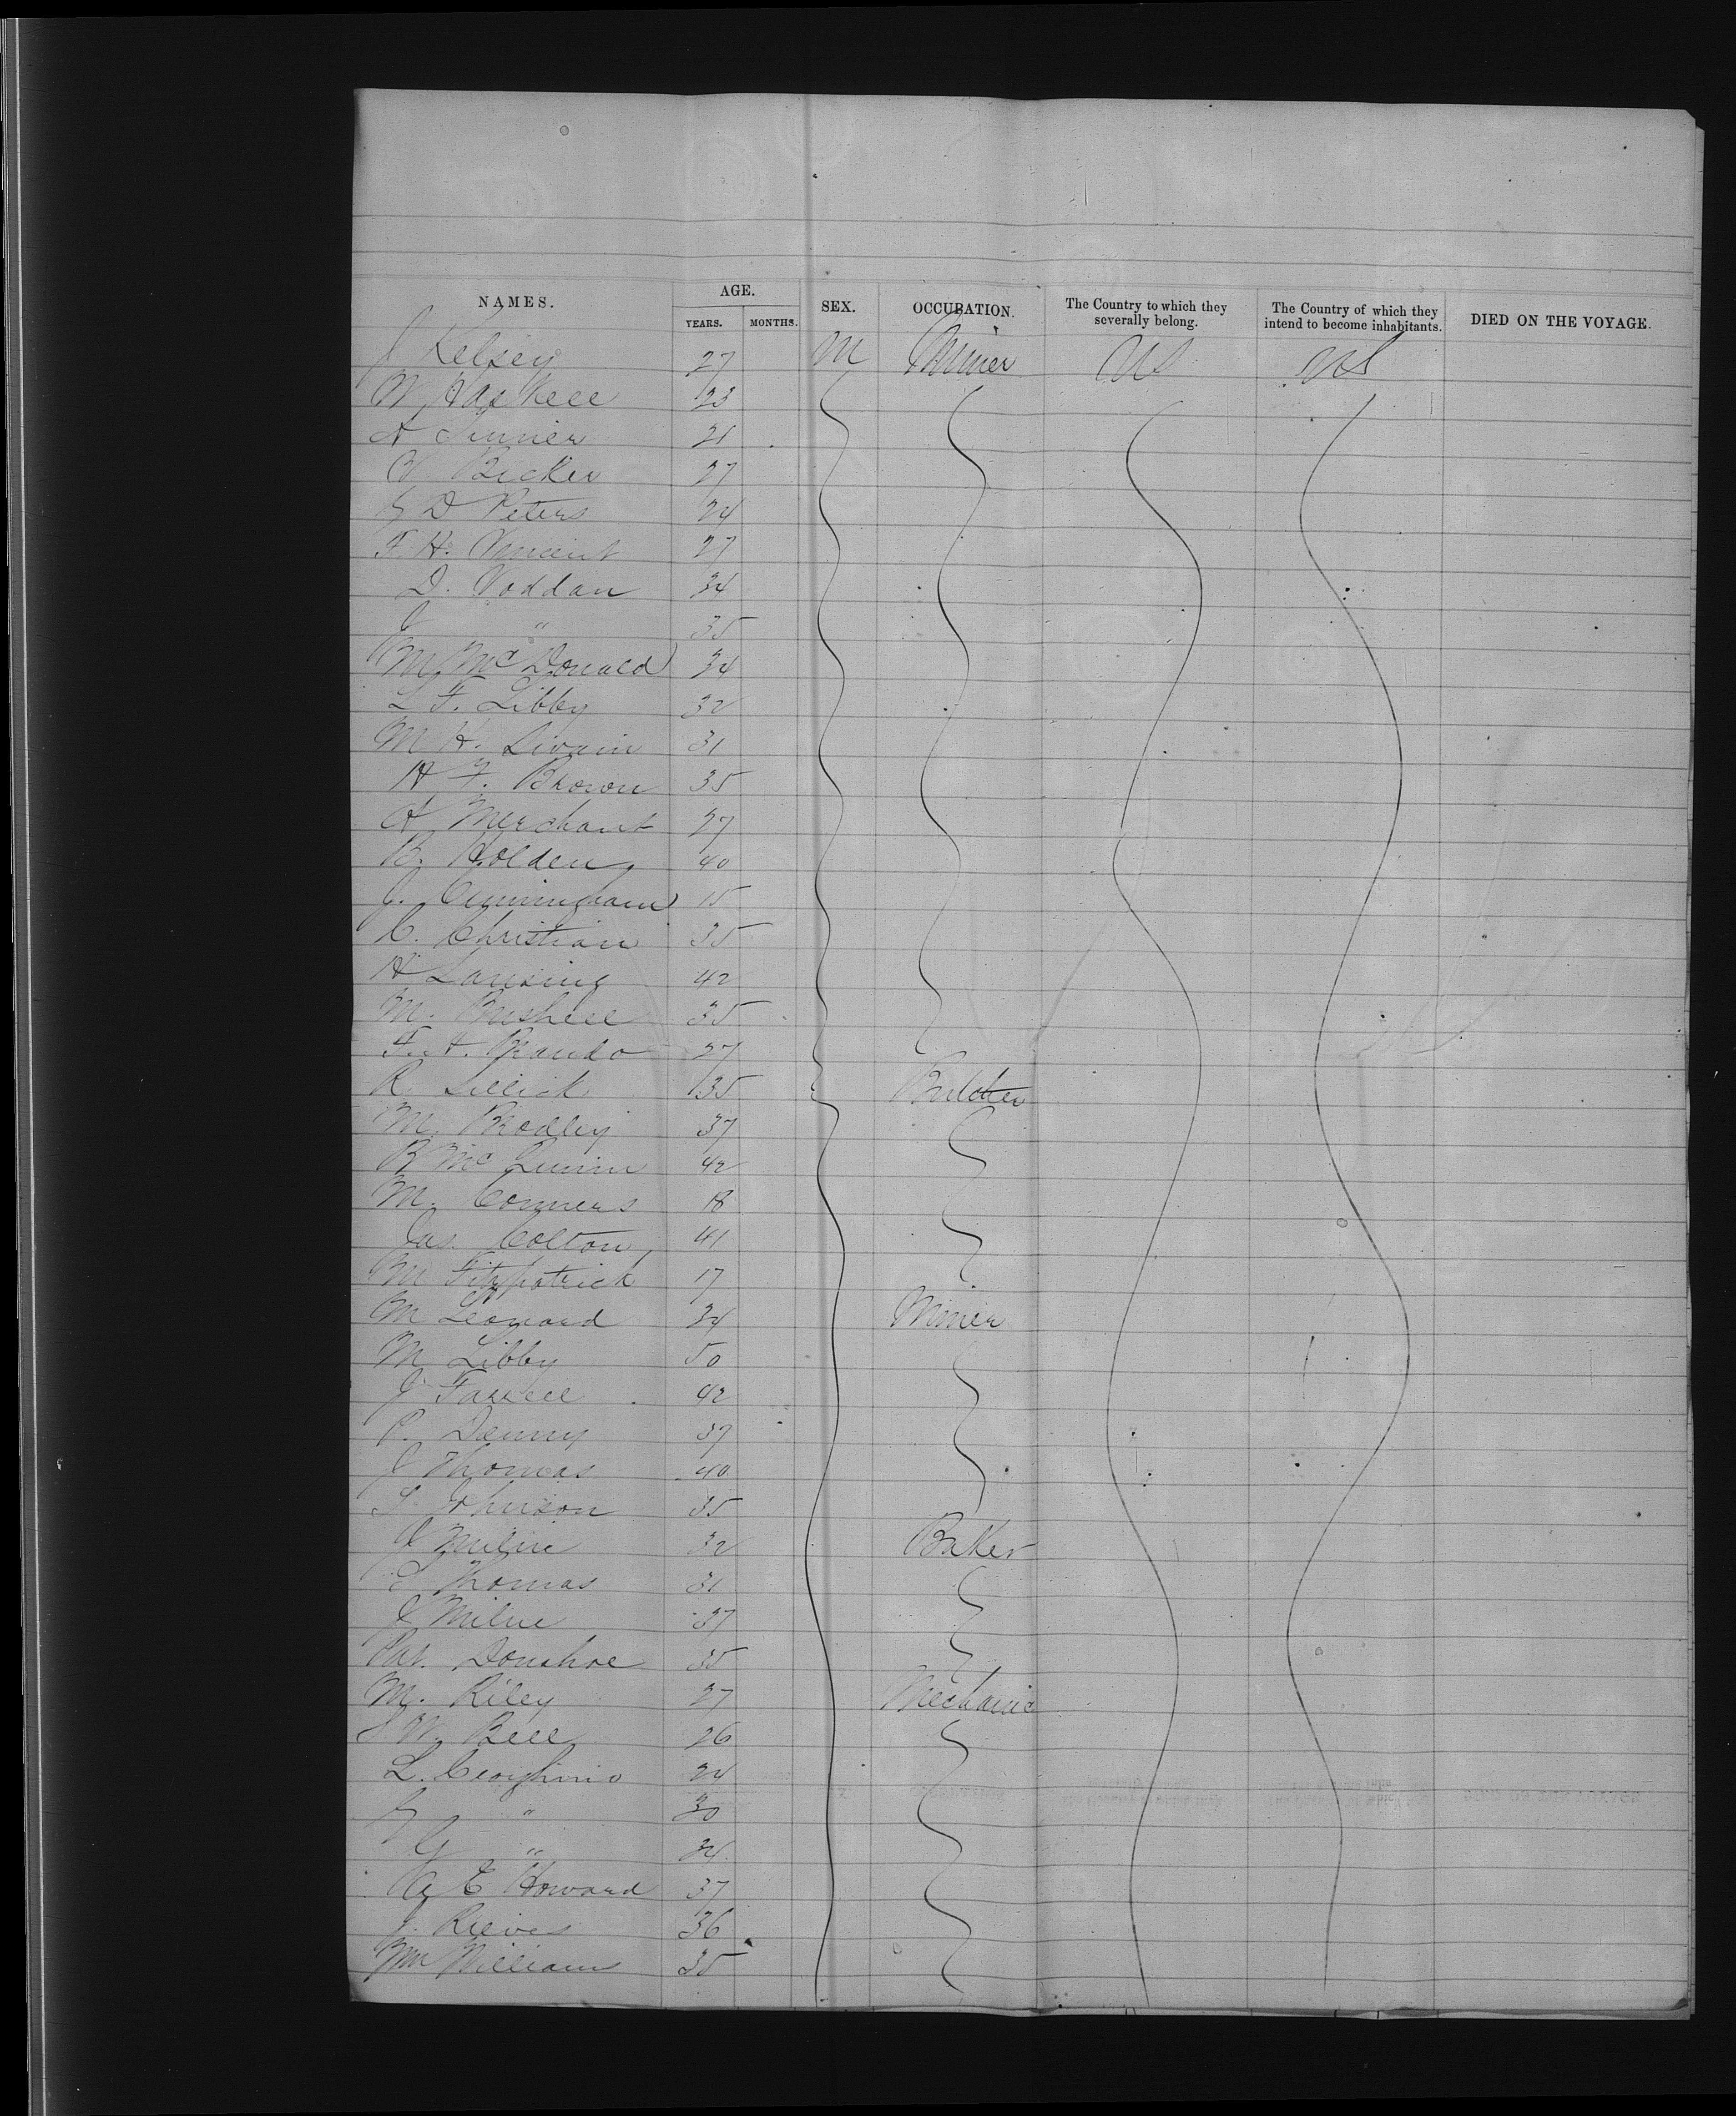 NAMES. AGE. SEX. OCCUPATION. The Country to which they severally belong. The Country of which they intend to become inhabitants. DIED ON THE VOYAGE.
YEARS. MONTHS.
J Kelsey 27 M Miner US US
W Haskell 23
A Sumner 21
Becker 27
G D Peters 24
F. H. Vincent 27
D. Voddan 34
J " 35
M McDonald 34
L F. Libby 32
M H. Swain 31
H F. Brown 35
A Merchant 27
B. Holden 40
J. Cunningham 15
C. Christian 35
H Lansing 42
M. Bushell 35
F. A. 27
R. Sellick 35 Butcher
M. Bradley 37
B McQuinn 42
M. Conners 18
Jas. Colton 41
M Fitzpatrick 17
M Leonard 34 Miner
M Libby 50
J Farrell 42
P. Denny 37
J Thomas 40
S Johnson 35
J Milne 32 Baker
S Thomas 31
J Milne 37
Pat. Donahoe 35
M. Riley 27 Mechanic
J W. Bell 26
L. 24
G " 30
G " 34
A E Howard 37
J. Reeves 36
Wm Williams 35